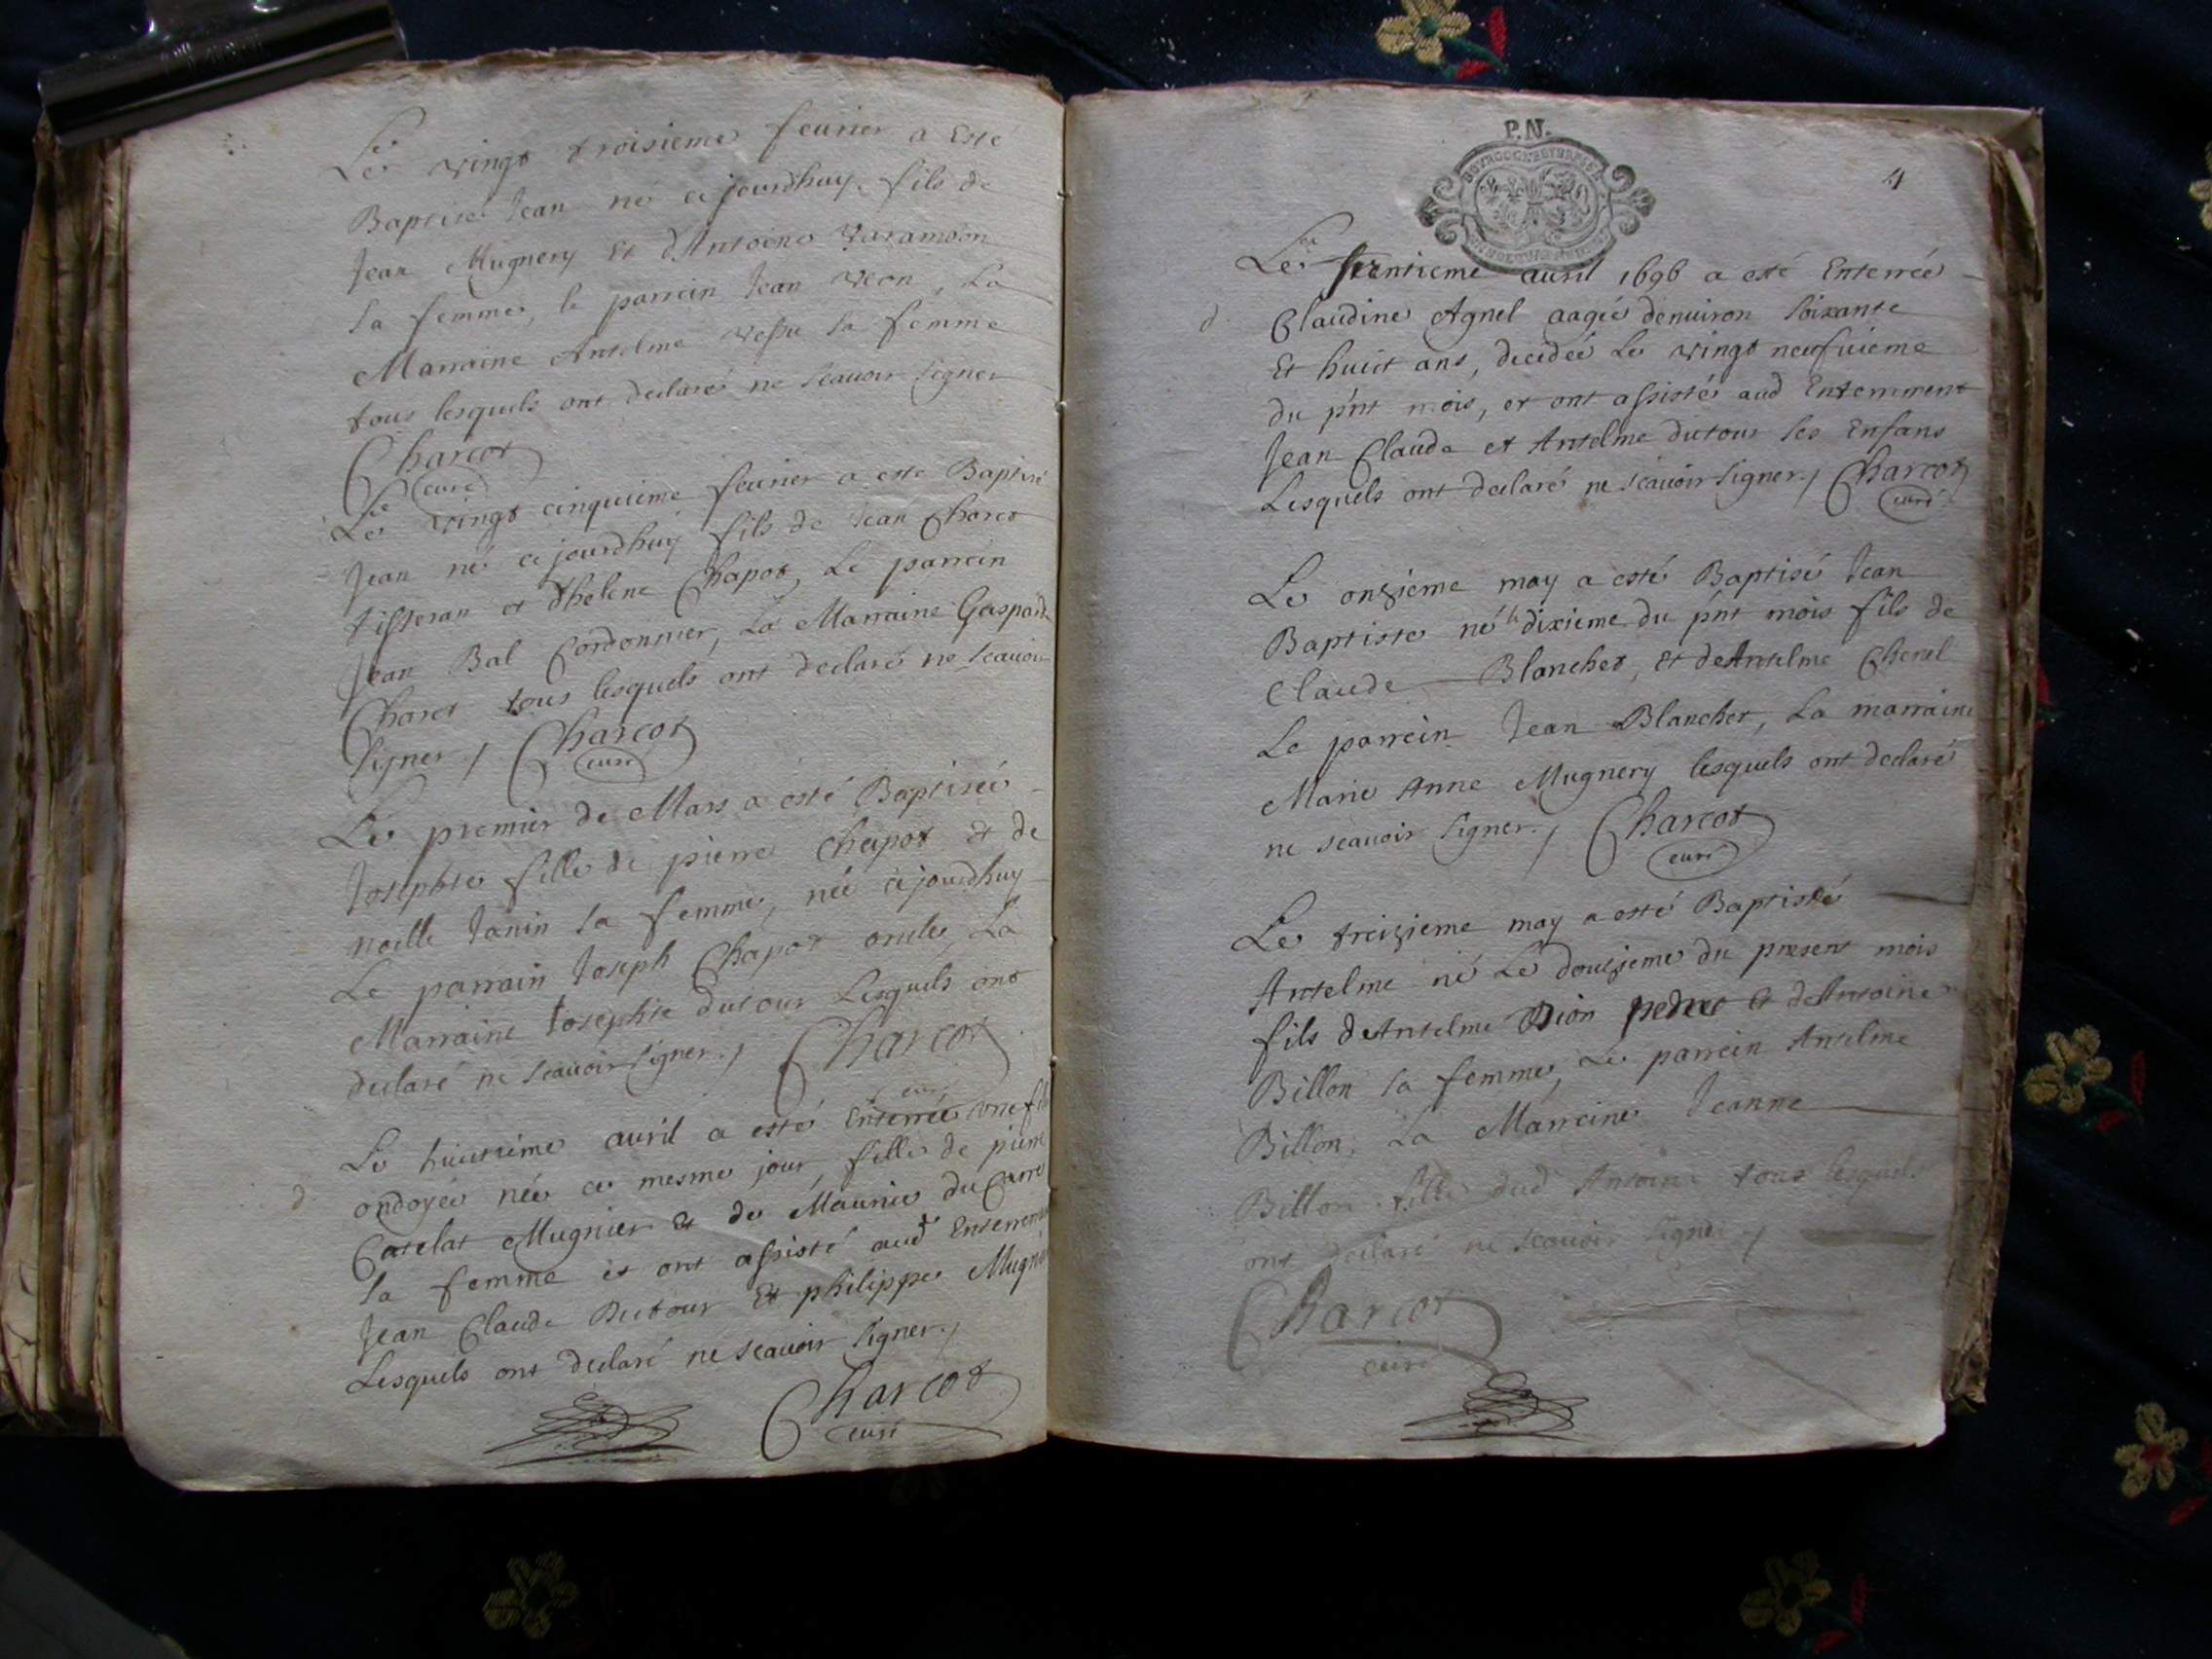 Le vingt troisieme feurier a esté
Baptisé Jean né ce jourdhuy fils de
Jean Mugnery Et d'Antoine Varambon
sa femme, le parrein Jean , La
Marraine Antelme sa femme
tous lesquels ont declaré ne scauoir signer
Charcot
curé
Le vingt cinquieme feurier a esté Baptisé
Jean né ce jourdhuy fils de Jean Charet
tisseran et d'helene Chapot, Le parrein
Jean Bal Cordonnier, La Marraine Gasparde
Charet tous lesquels ont declaré ne scauoir
signer./ Charcot
curé
Le premier de Mars a esté Baptisée
Josephte fille de pierre Chapot et de
noelle Janin sa femme, née ce jourdhuy
Le parrain Joseph Chapot oncle, La
Marraine Josephte dutour Lesquels ont
declaré ne scauoir signer./ Charcot
curé
Le huictieme auril a esté Enterrée une fille
d
ondoyée née ce mesme jour, fille de pierre
Catelat Mugnier et de Maurice du Carre
sa femme et ont assisté aud Enterrement
Jean Claude Dutour Et philippe Mugnier
Lesquels ont declaré ne scauoir signer./
Charcot
curé
P.N.
4
Le trentieme auril 1696 a esté Enterrée
d
Claudine Agnel aagée denuiron soixante
Et huict ans, decedée Le vingt neufuieme
du pnt mois, et ont assistés aud Enterrement
Jean Claude et Antelme dutour ses Enfans
Lesquels ont declaré ne scauoir signer./ Charcot
curé
Le onzieme may a esté Baptisé Jean
Baptiste né le dixieme du pnt mois fils de
Claude Blanchet, Et de Antelme Chenel
Le parrein Jean Blanchet, La marraine
Marie Anne Mugnery lesquels ont declaré
ne scauoir signer./ Charcot
curé
Le treizieme may a esté Baptisé
Antelme né Le douzieme du present mois
fils de Antelme Dion et de Antoine
Billon sa femme, Le parrein Antelme
Billon, La Marreine Jeanne
Billon fille dud Antoine tous lesquels
ont declaré ne scauoir signer./
Charcot
curé